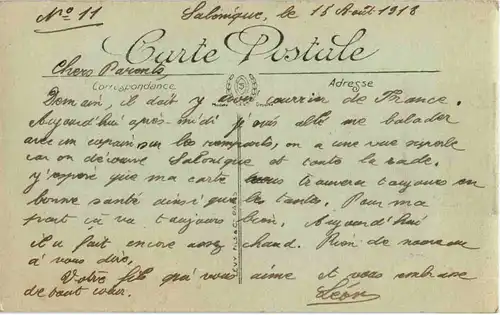 No 11
Salonique, le 15 Août 1918
Carte Postale
Chers Parents
Correspondance
Adresse
Demain, il doit y avoir courrier de France.
Aujourd'hui après-midi j'suis allé me balader
avec un copain sur les remparts, on a une vue superbe
car on découvre Salonique et toute la rade.
J'espère que ma carte vous trouvera toujours en
bonne santé ainsi que les tantes. Pour ma
part ça va toujours bien. Aujourd'hui
il a fait encore assez chaud. Rien de nouveau
à vous dire.
Votre fils qui vous aime et vous embrasse
de tout cœur.
Léon
LEVY FILS & CIE, PARIS